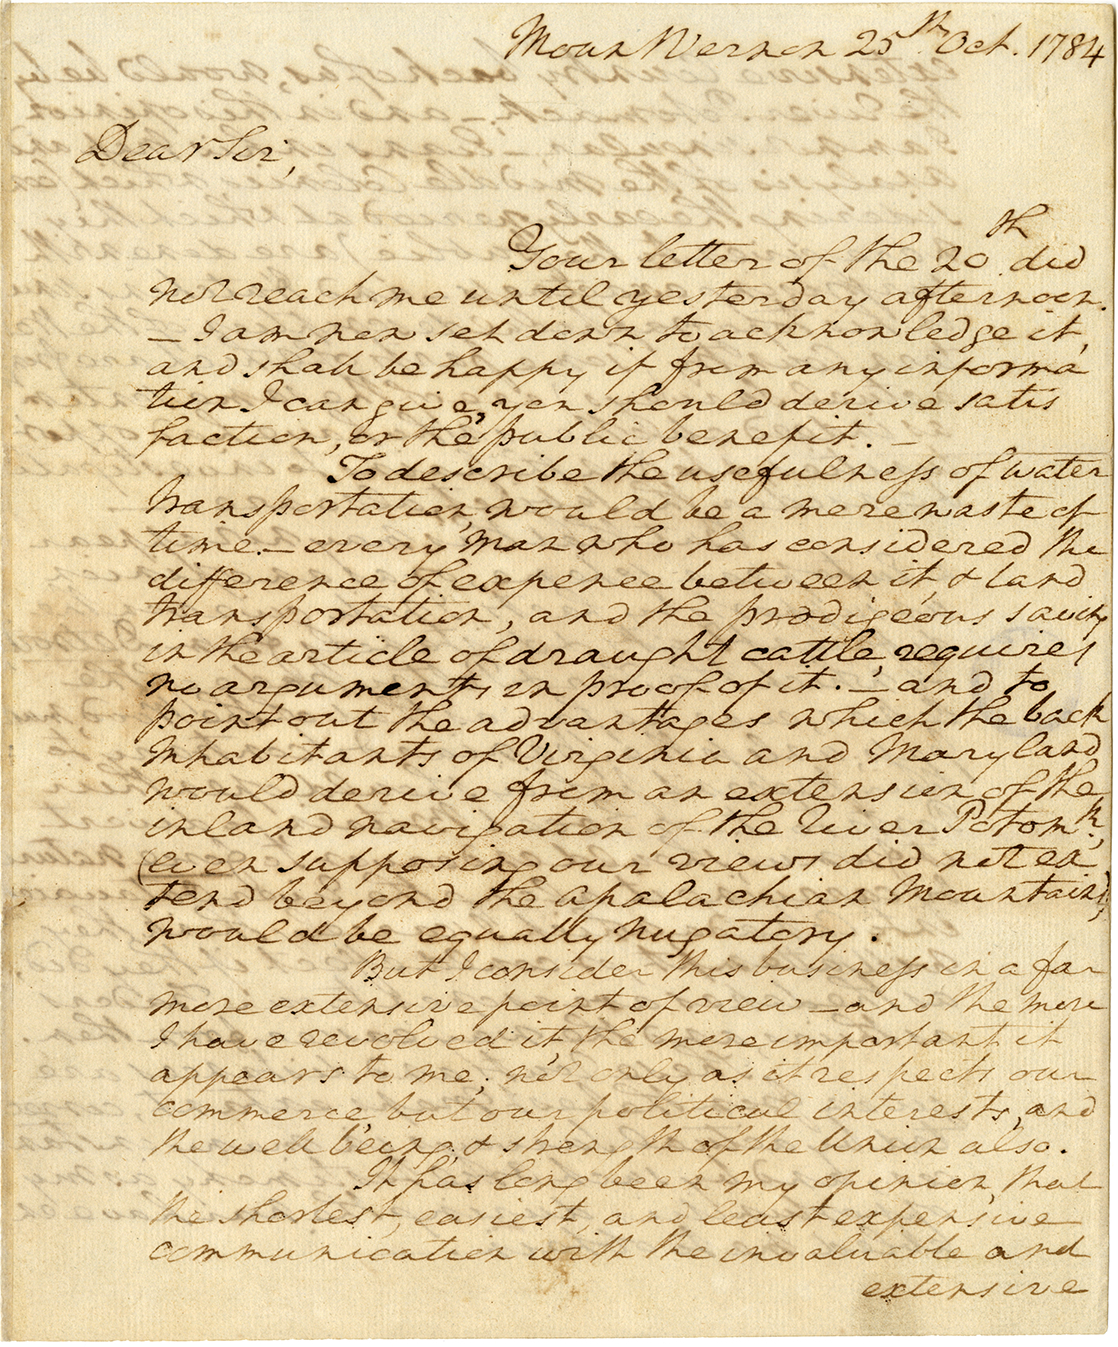 Mount Vernon 25th Oct. 1784
Dear Sir,
Your letter of the 20th did
not reach me until yesterday afternoon.
— I am now set down to acknowledge it,
and shall be happy if from any informa
tion I can give, you should derive satis
faction, or the public benefit. —
To describe the usefulness of water
transportation, would be a mere waste of
time. — every Man who has considered the
difference of expence between it, & land
transportation, and the prodigeous saving
in the article of draught cattle, requires
no arguments in proof of it. — and to
point out the advantages which the back
Inhabitants of Virginia and Maryland
would derive from an extension of the
inland navigation of the River Potomk,
(even supposing our views did not ex
tend beyond the apalachian Mountains)
would be equally nugatory.
But I consider this business in a far
more extensive point of view — and the more
I have revolved it the more important it
appears to me; not only as it respects our
commerce but our political interests, and
the well being, & strength of the Union also.
It has long been my opinion, that
the shortest, easiest, and least expensive
communication with the invaluable and
extensive